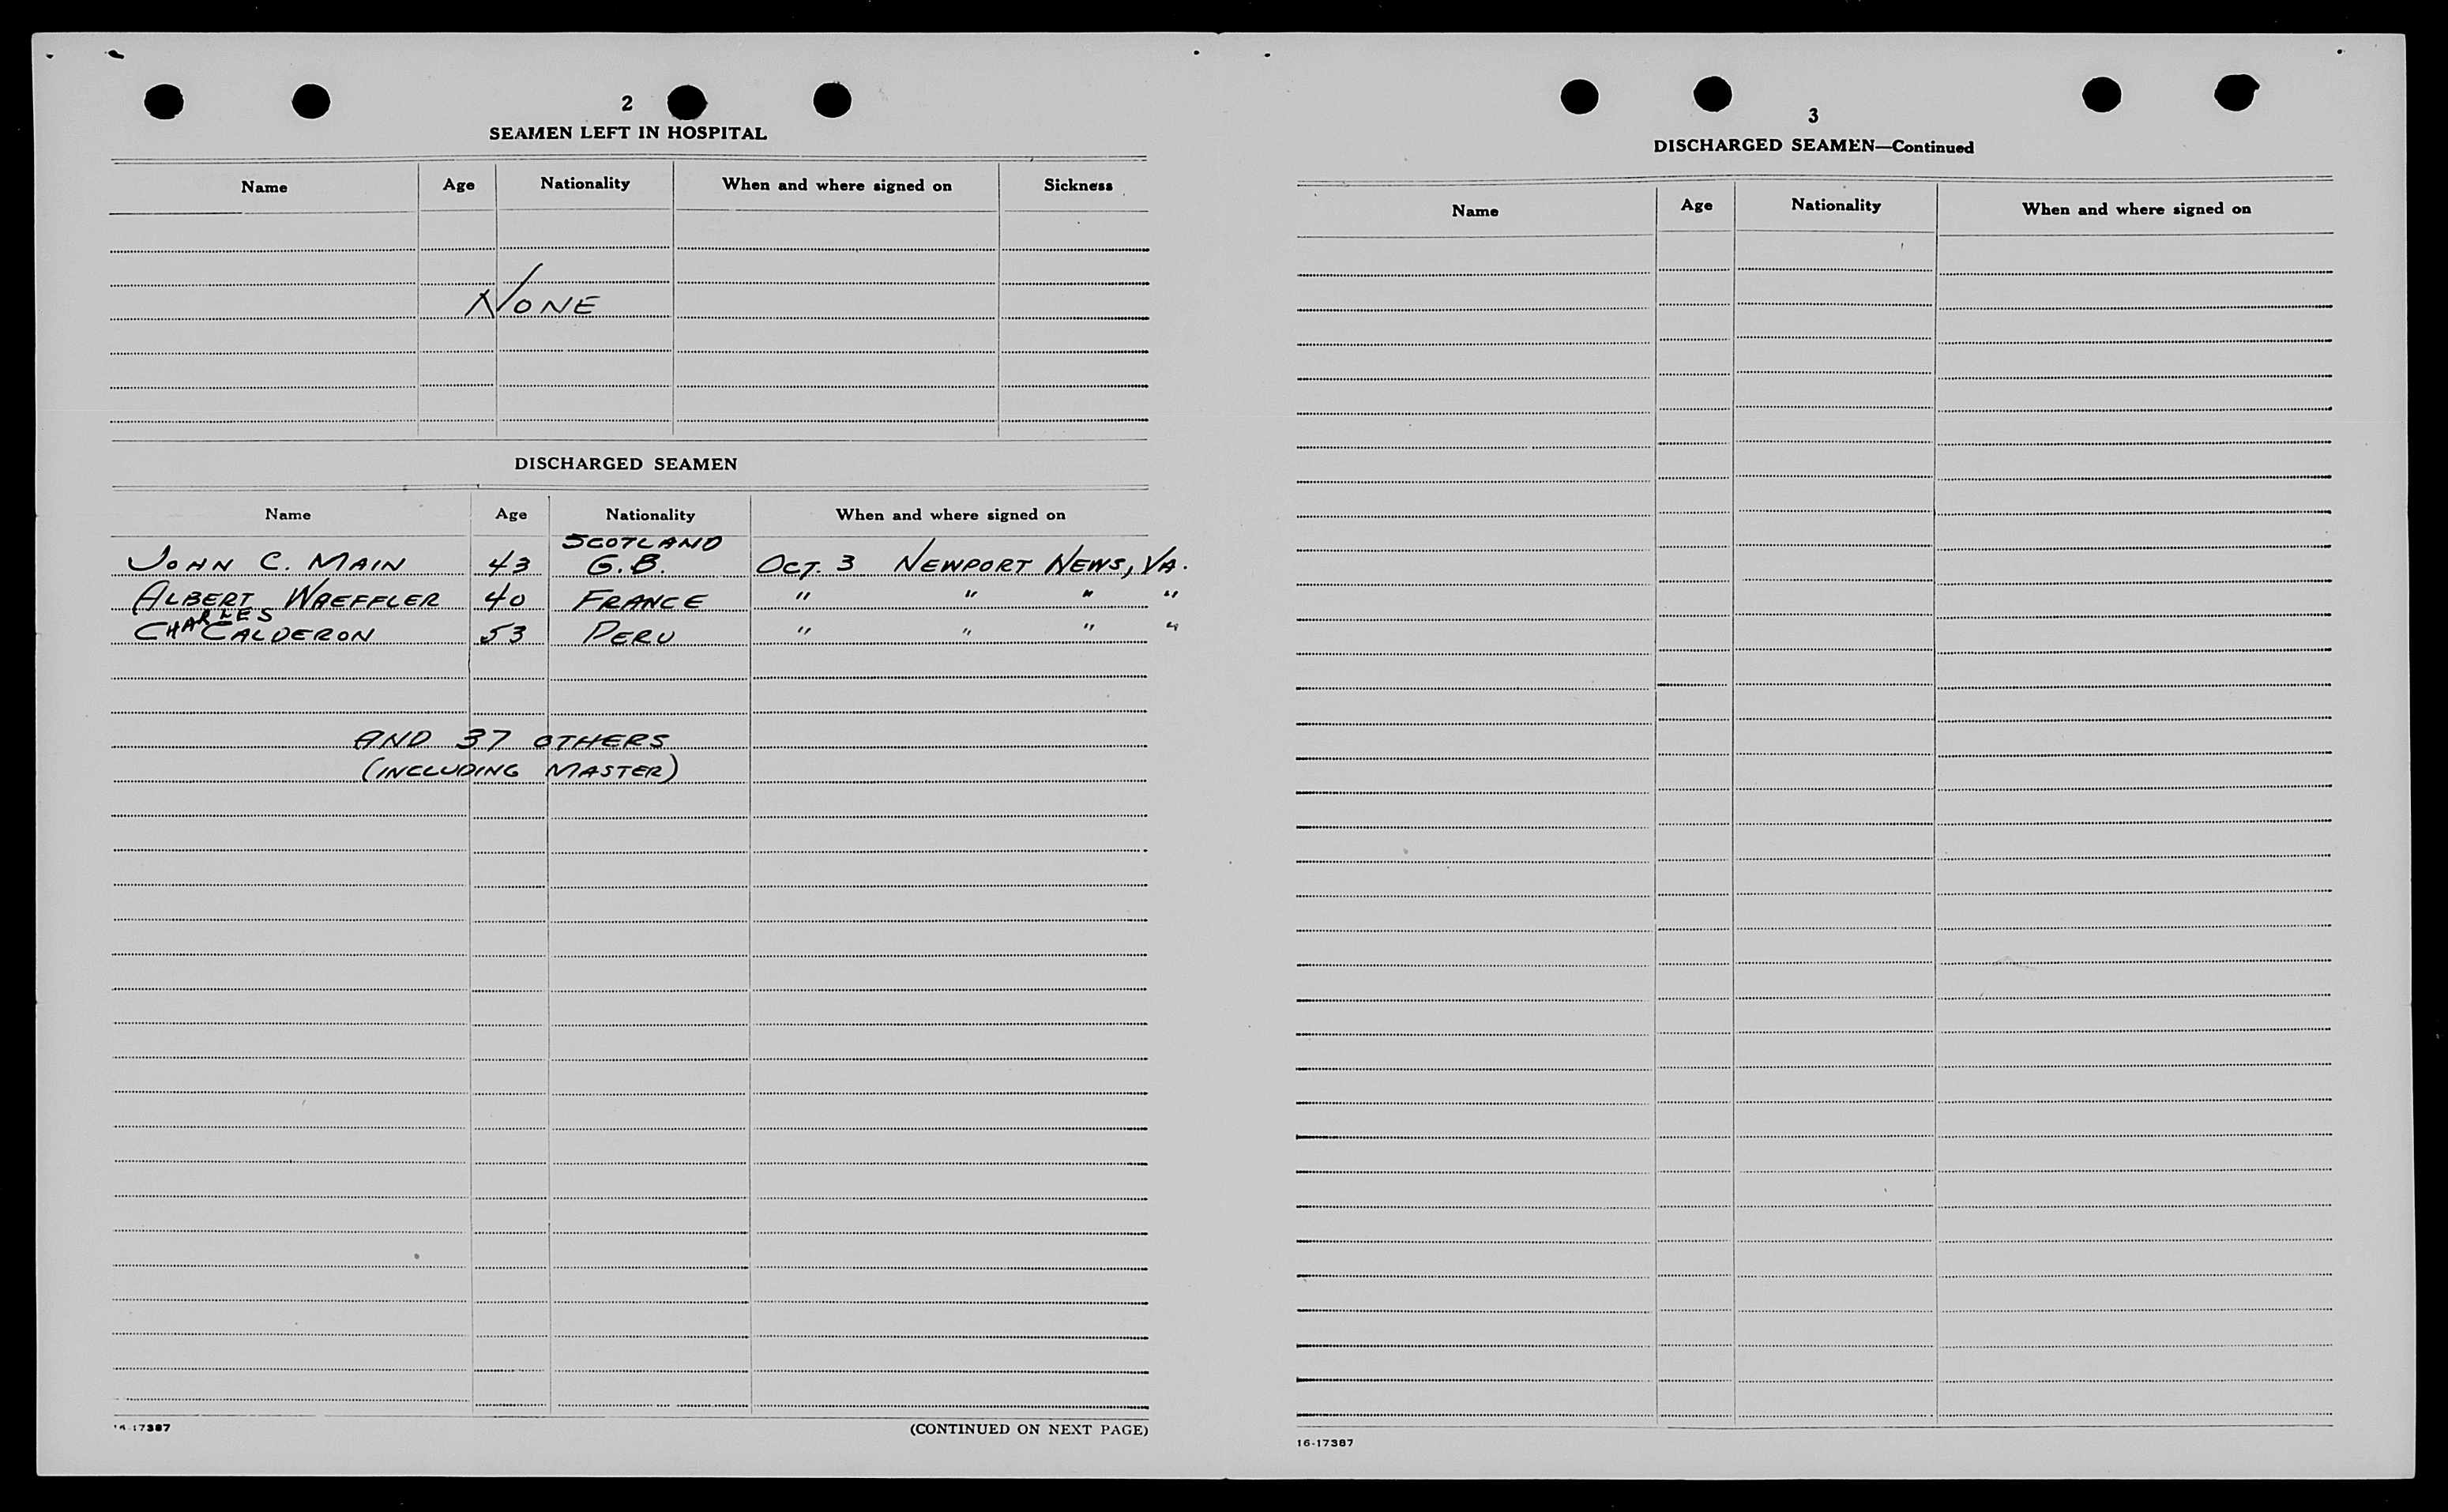 2
SEAMEN LEFT IN HOSPITAL
Name Age Nationality When and where signed on Sickness
NONE
DISCHARGED SEAMEN
Name Age Nationality When and where signed on
SCOTLAND
JOHN C. MAIN 43 G.B. OCT. 3 NEWPORT NEWS, VA.
ALBERT WAEFFLER 40 FRANCE " " " "
CHARLES CALDERON 53 PERU " " " "
AND 37 OTHERS
(INCLUDING MASTER)
16-17387 (CONTINUED ON NEXT PAGE)
3
DISCHARGED SEAMEN—Continued
Name Age Nationality When and where signed on
16-17387